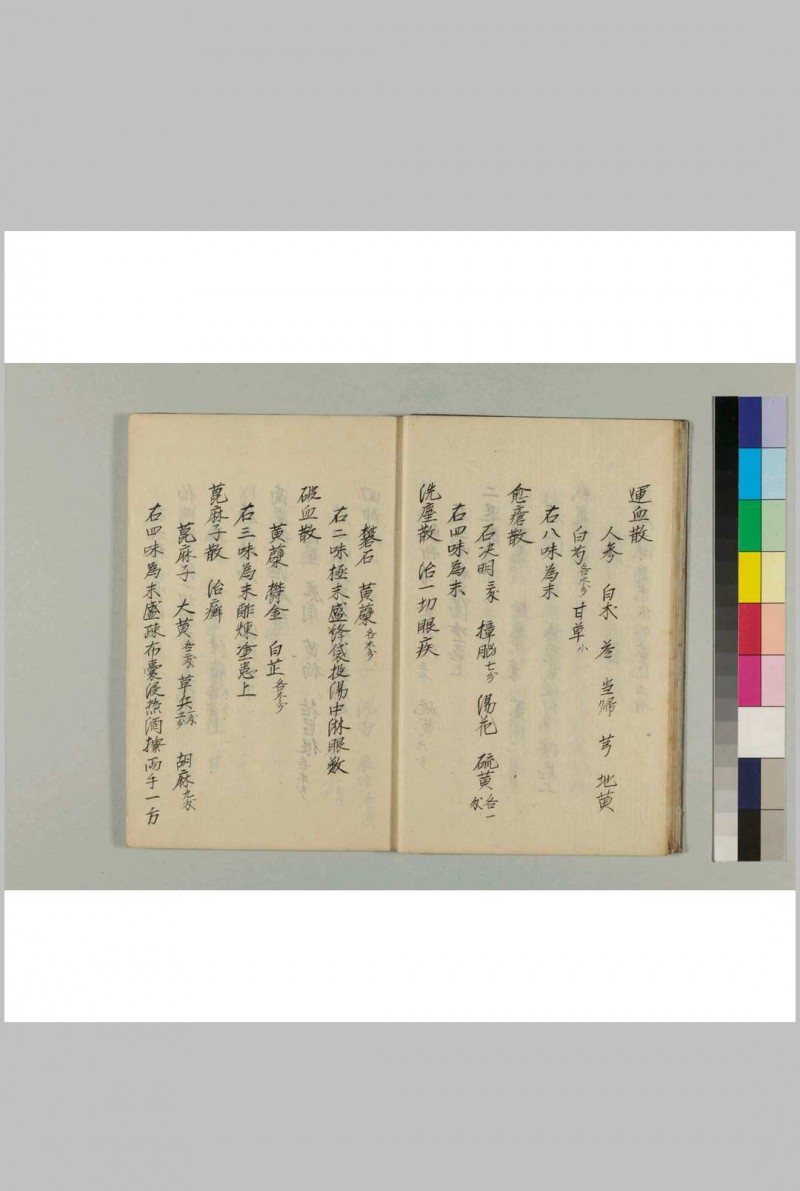 運血散
人参 白朮 苓 当帰 芎 地黄
白芍各等分 甘草小
右八味為末
愈瘡散
石决明 樟脳七分 湯花 硫黄各一
右四味為末
洗塵散 治一切眼疾
礬石 黄蘗各等分
右二味極末盛絳袋投湯中淋眼数
破血散
黄蘗 欝金 白芷各等分
右三味為末酢煉塗患上
萆麻子散 治癬
萆麻子 大黄 胡麻
右四味為末盛疎布嚢浸焦酒擦両手一方